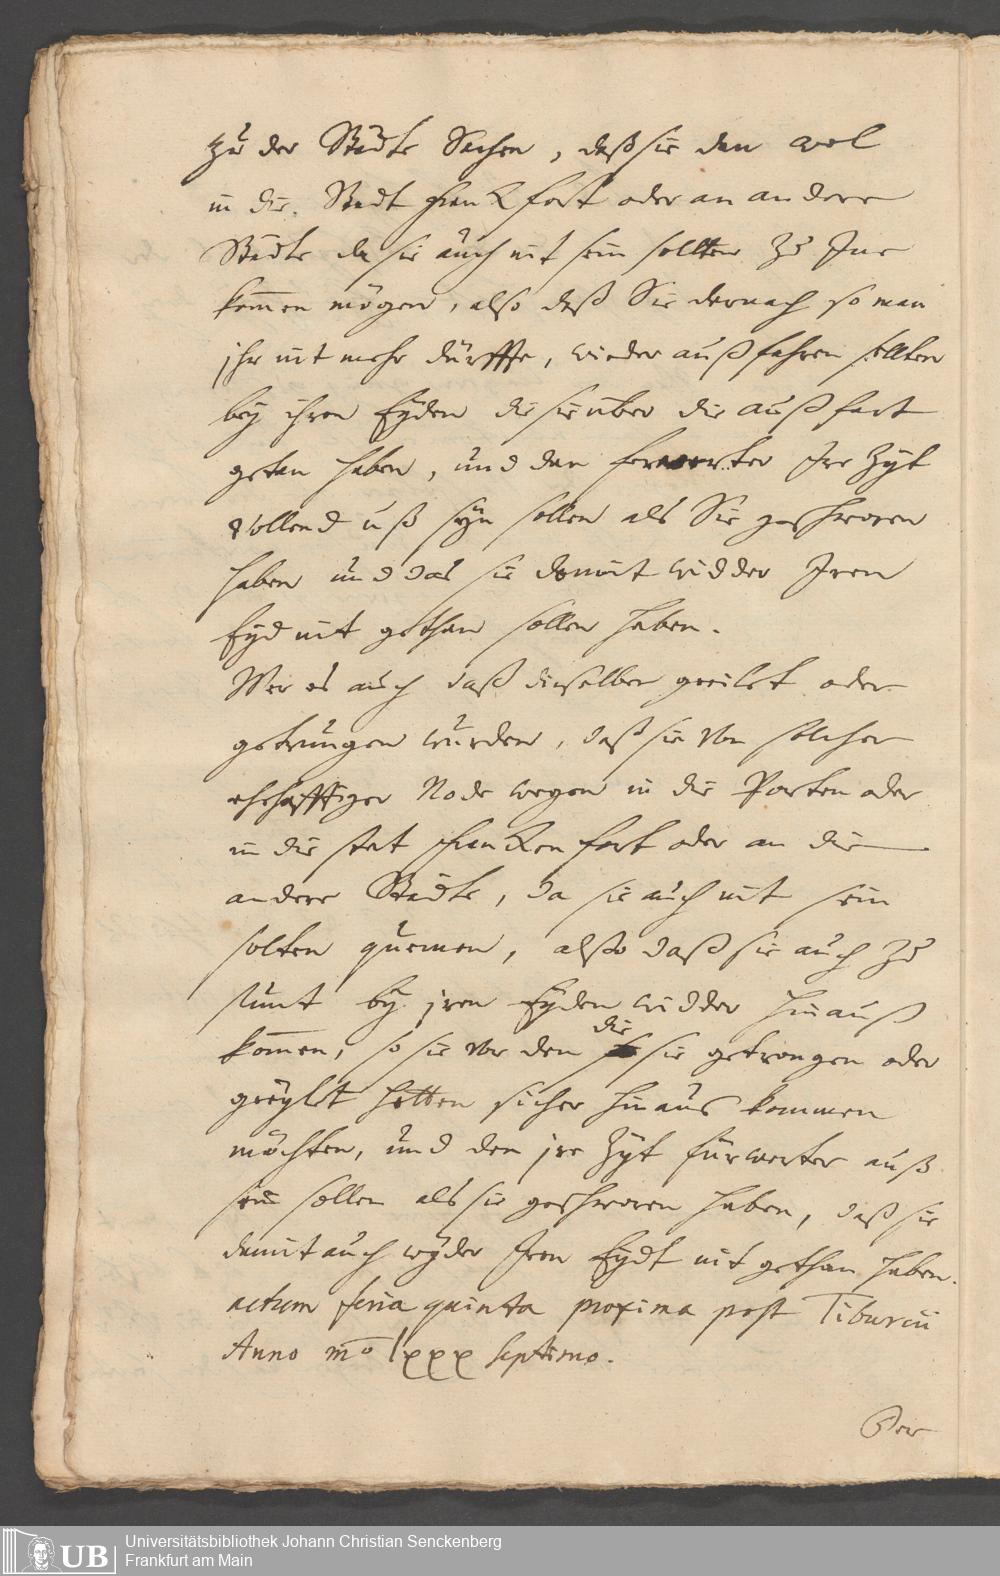 zu der Städte Sachen, daß sie dan wol
in die Stadt Frankfort oder an andere
Städte da sie auch nit sein sollten zu Jne
komen mögen, also daß Sie darnach so man
jhr nit mehr dürffte, wieder außfahren sollten
bey ihren Eyden die sie über die außfart
getan haben, und dan Jre Zyt
vollend uß syn sollen als Sie geschworen
haben und das sie domit widder Jren
Eyd nit gethan sollen haben.
Wer es auch daß dieselben geeilet oder
getrungen würden, daß sie von solcher
ehehafftiger Node wegen in die Porten oder
in die stat Franckenfort oder an die
andere Städte, da sie auch nit sein
solten quemen, also daß sie auch zu
stunt by jren Eyden widder hinauß
komen, so sie vor den die sie getrongen oder
geeylet hetten sicher hinaus kommen
möchten, und den jre Zyt fürwerter auß
sein sollen als sie geschworen haben, daß sie
damit auch wyder Jren Eydt nit gethan haben.
actum feria quinta proxima post Tiburcii
Anno mo lxxx septimo.
Der
UB
Universitätsbibliothek Johann Christian Senckenberg
Frankfurt am Main